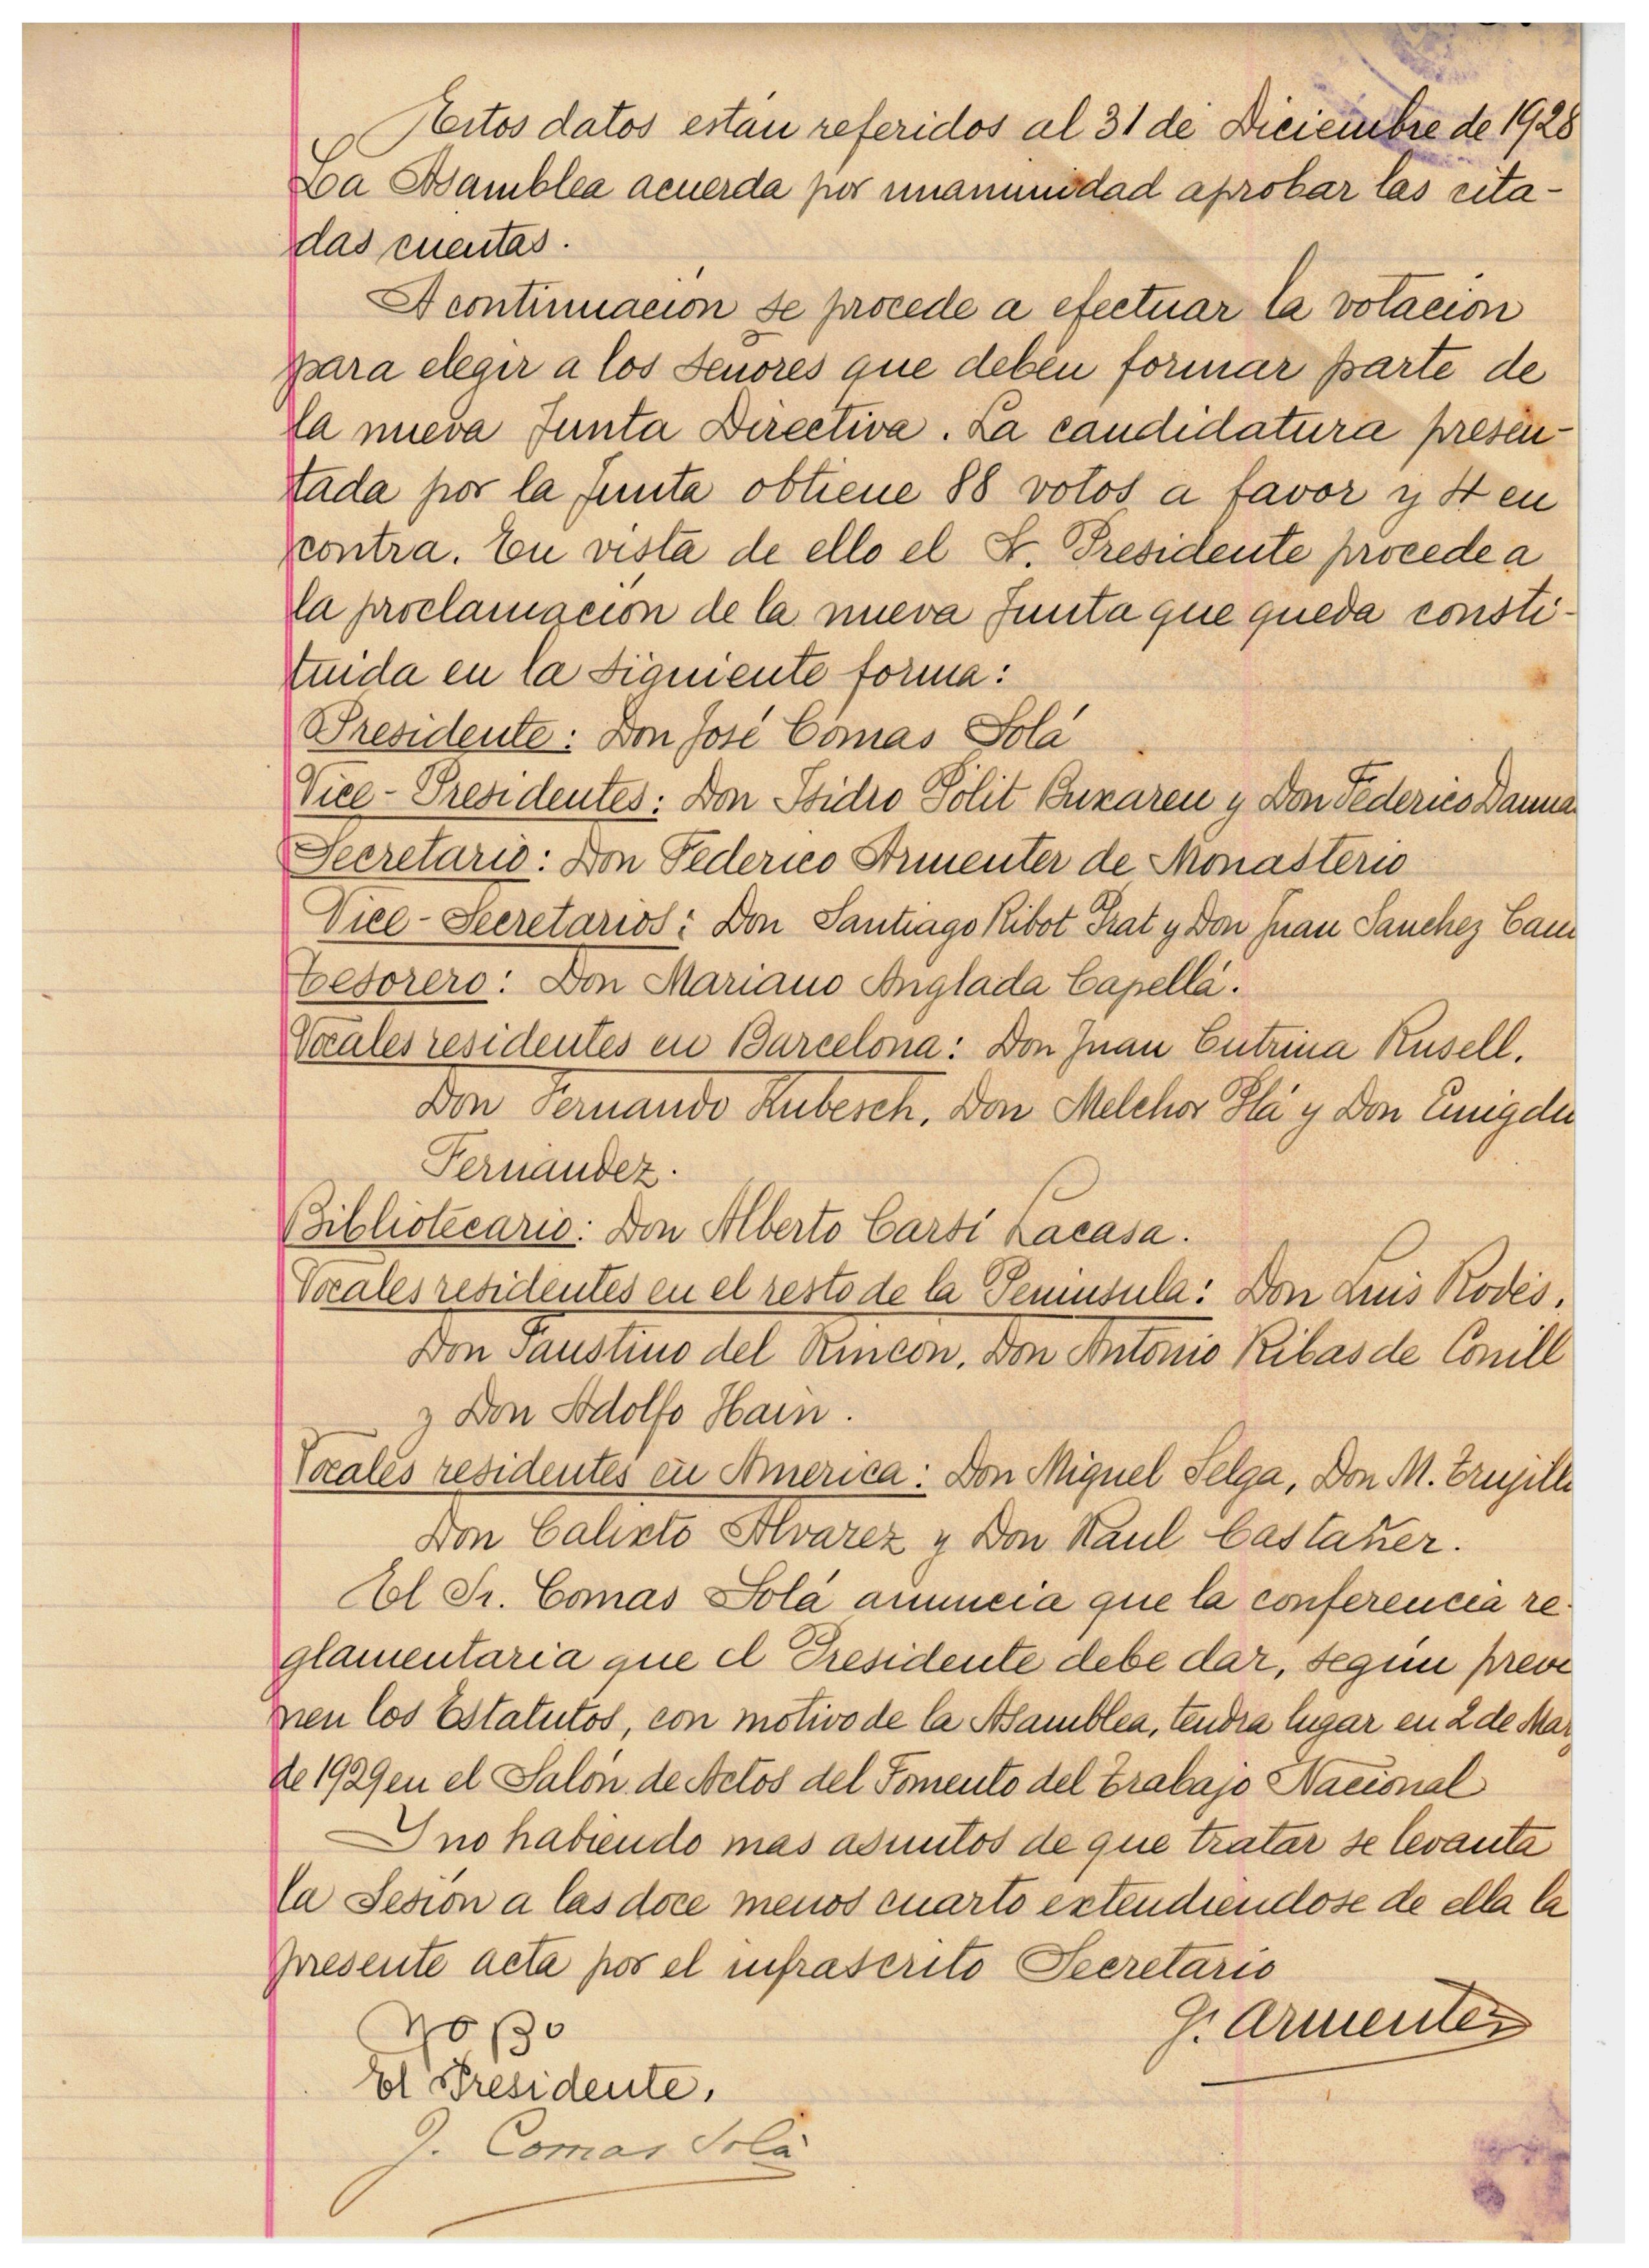 Estos datos están referidos al 31 de Diciembre de 1928
La Asamblea acuerda por unanimidad aprobar las cita-
das cuentas.
A continuación se procede a efectuar la votación
para elegir a los Señores que deben formar parte de
la nueva Junta Directiva. La candidatura presen-
tada por la Junta obtiene 88 votos a favor y 4 en
contra. En vista de ello el Sr. Presidente procede a
la proclamación de la nueva Junta que queda consti-
tuida en la siguiente forma:
Presidente: Don José Comas Solá
Vice-Presidentes: Don Isidro Pólit Buxareu y Don Federico
Secretario: Don Federico Armenter de Monasterio
Vice-Secretarios: Don Santiago Ribot Prat y Don Juan Sanchez
Tesorero: Don Mariano Anglada Capellá.
Vocales residentes en Barcelona: Don Juan Cutrina Rusell.
Don Fernando Kubesch, Don Melchor Plá y Don
Fernandez.
Bibliotecario: Don Alberto Carsí Lacasa.
Vocales residentes en el resto de la Peninsula: Don Luis Rodés.
Don Faustino del Rincon, Don Antonio Ribas de Conill
y Don Adolfo Hain.
Vocales residentes en America: Don Miguel Selga, Don M. Trujill
Don Calixto Alvarez y Don Raul Castañer.
El Sr. Comas Solá anuncia que la conferencia re-
glamentaria que el Presidente debe dar, según previe
nen los Estatutos, con motivo de la Asamblea, tendra lugar en 2 de Mar
de 1929 en el Salón de Actos del Fomento del Trabajo Nacional
Y no habiendo mas asuntos de que tratar se levanta
la Sesión a las doce menos cuarto extendiendose de ella la
presente acta por el infrascrito Secretario
Vº Bº
F. Armenter
El Presidente,
J. Comas Solà